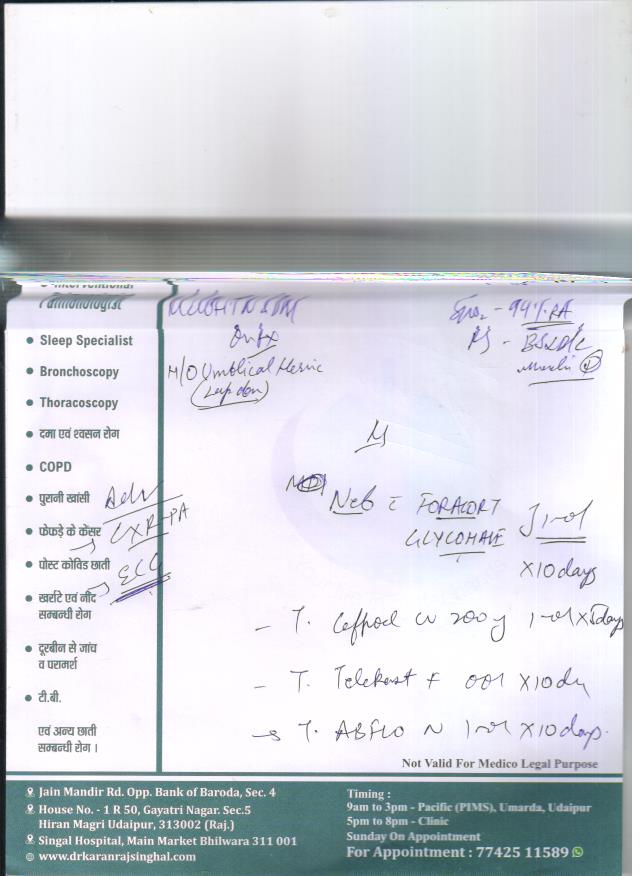 Pulmonologist
• Sleep Specialist
• Bronchoscopy
• Thoracoscopy
• दमा एवं श्वसन रोग
• COPD
• पुरानी खांसी
• फेफड़े के कैंसर
• पोस्ट कोविड छाती
• खर्राटे एवं नींद
सम्बन्धी रोग
• दूरबीन से जांच
व परामर्श
• टी.बी.
एवं अन्य छाती
सम्बन्धी रोग ।
Adv
CXR-PA
ECG
SpO2 - 99% RA
H/O Umblical Hernia
Neb c FORACORT
GLYCOHALE
1-01
x10 days
- T. Cefpod CV 200 1-01 x 5 days
- T. Telekast F 001 x10 day
T. ABFLO N 1-01 x10 days.
Not Valid For Medico Legal Purpose
Jain Mandir Rd. Opp. Bank of Baroda, Sec. 4
House No. - 1 R 50, Gayatri Nagar. Sec.5
Hiran Magri Udaipur, 313002 (Raj.)
Singal Hospital, Main Market Bhilwara 311 001
www.drkaranrajsinghal.com
Timing :
9am to 3pm - Pacific (PIMS), Umarda, Udaipur
5pm to 8pm - Clinic
Sunday On Appointment
For Appointment : 77425 11589